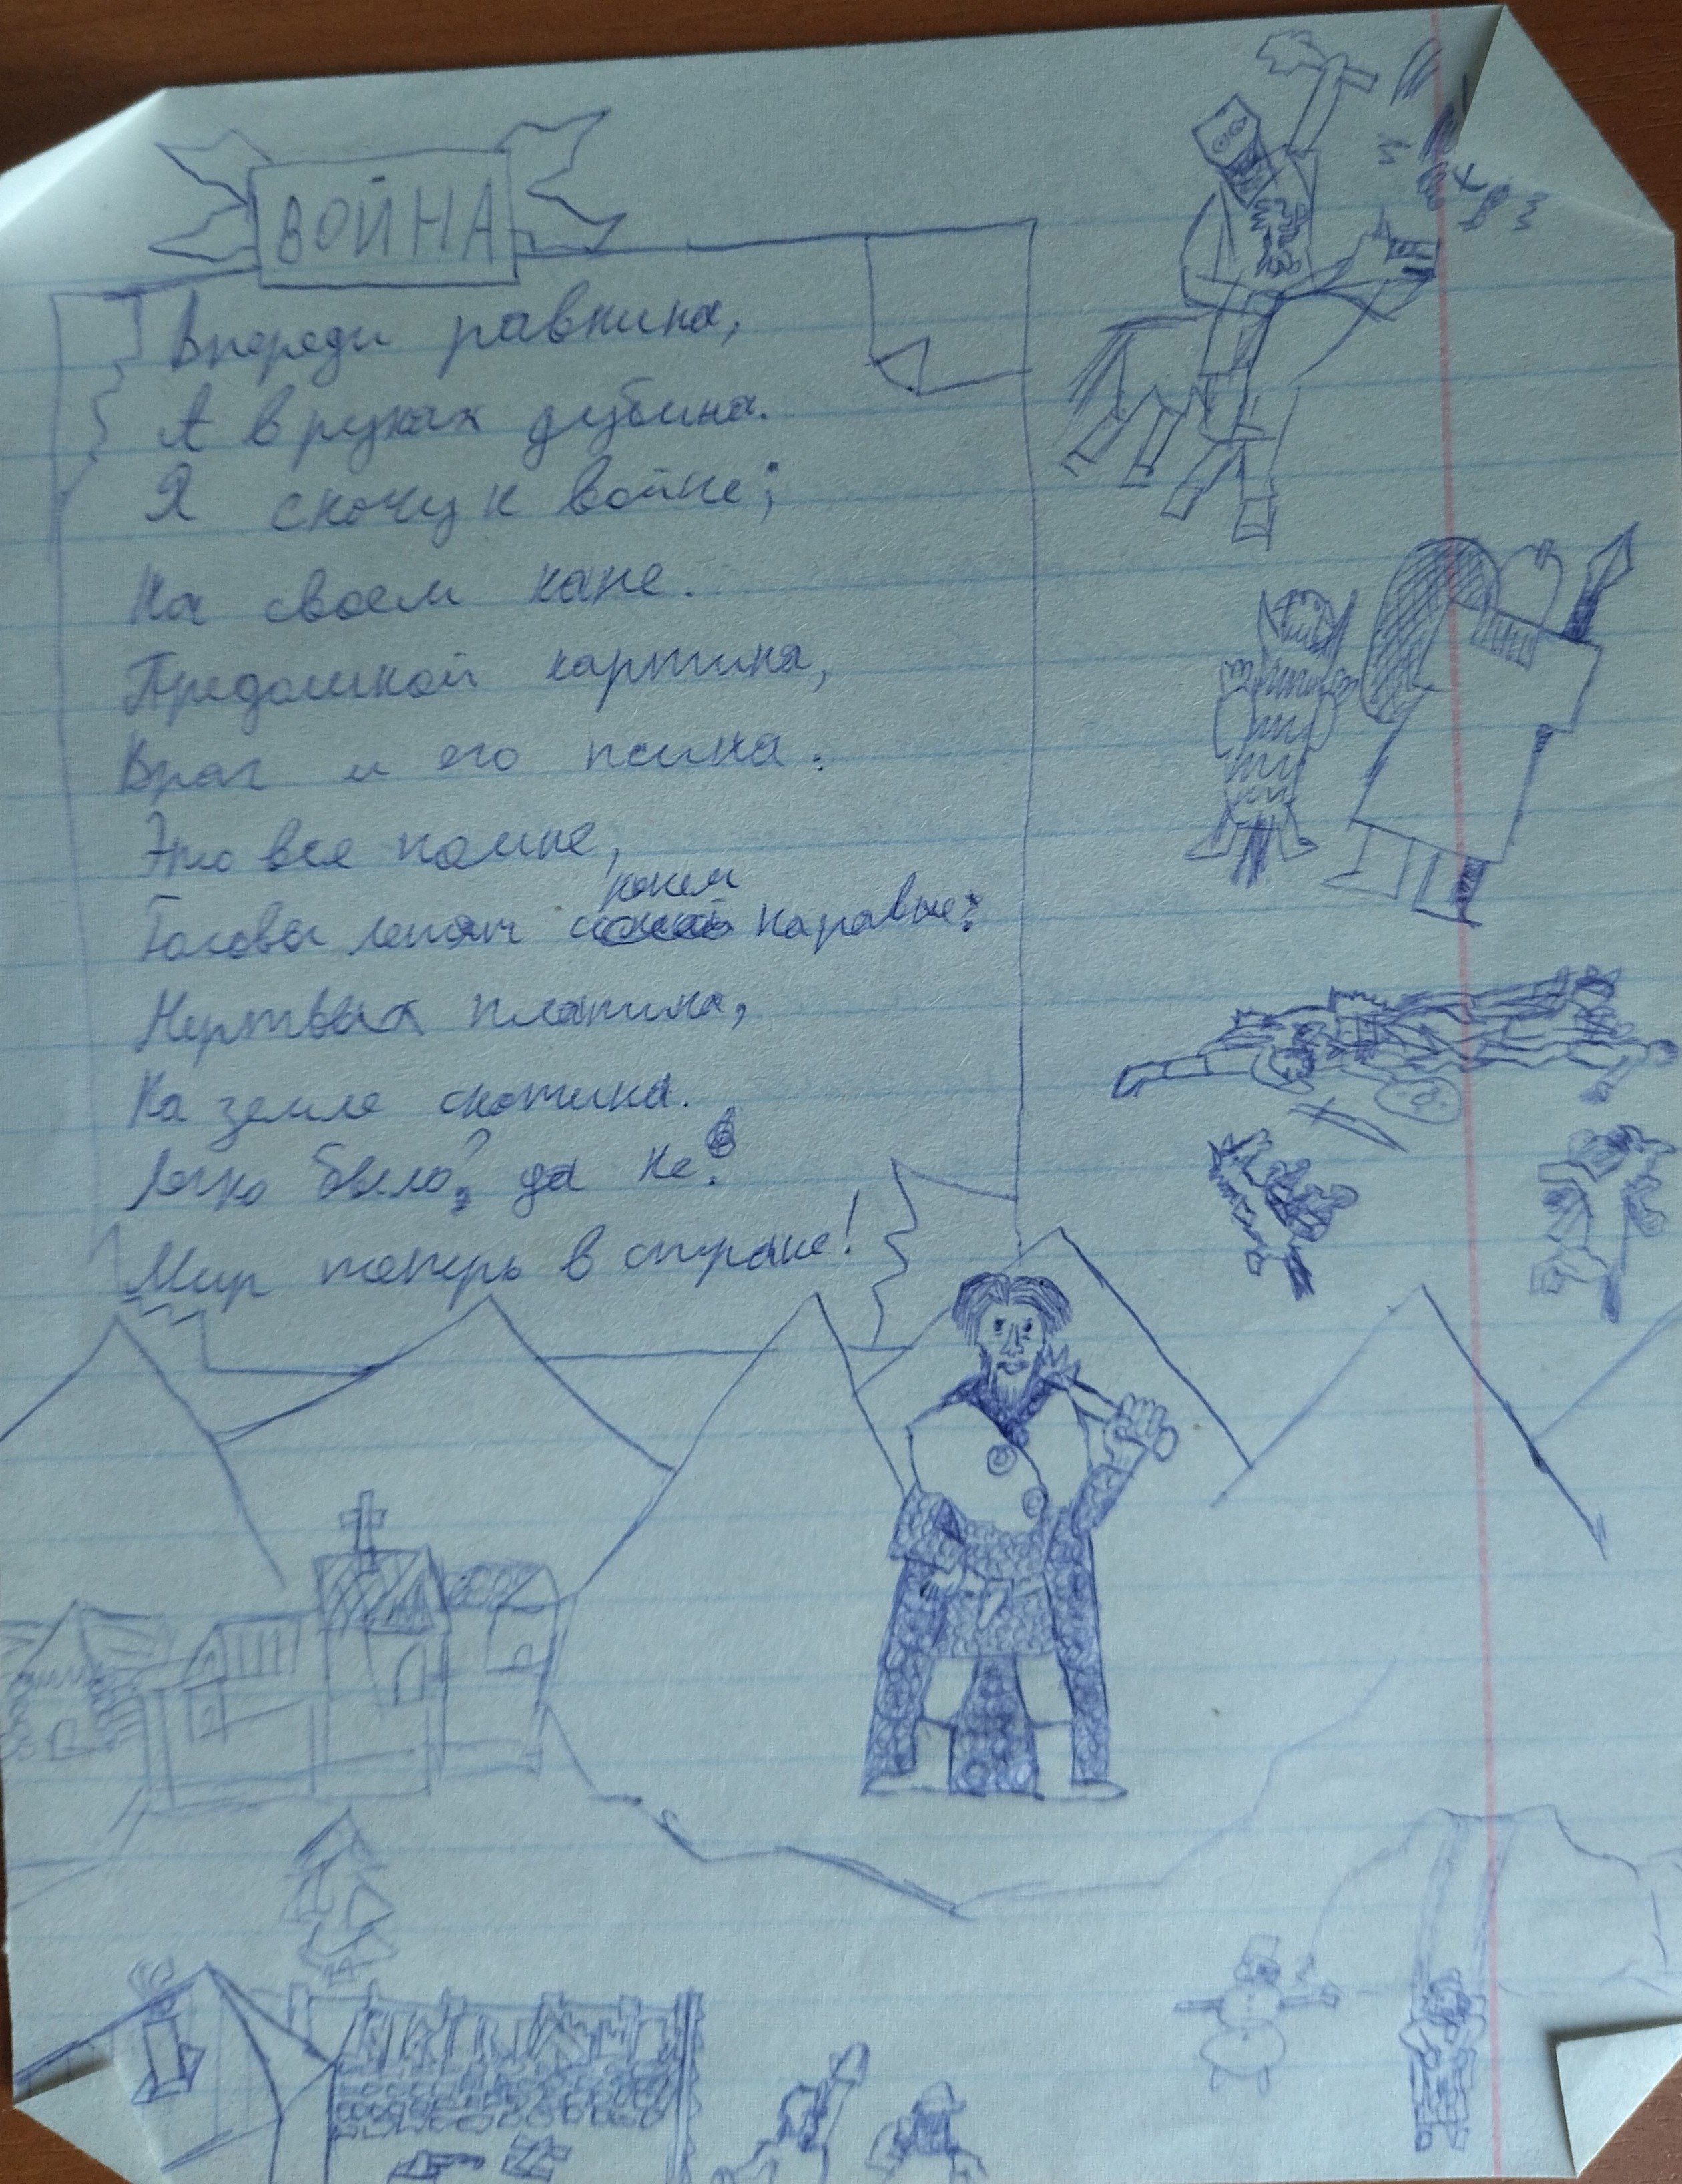 ВОЙНА
Впереди равнина,
А в руках дубина.
Я скочу к войне;
На своем кане.
Предомной картина,
Враг и его псина.
Это все комне,
Головы летят конем наравне:
Мертвых платина,
На земле скотина.
Легко было? да не!
Мир теперь в стране!